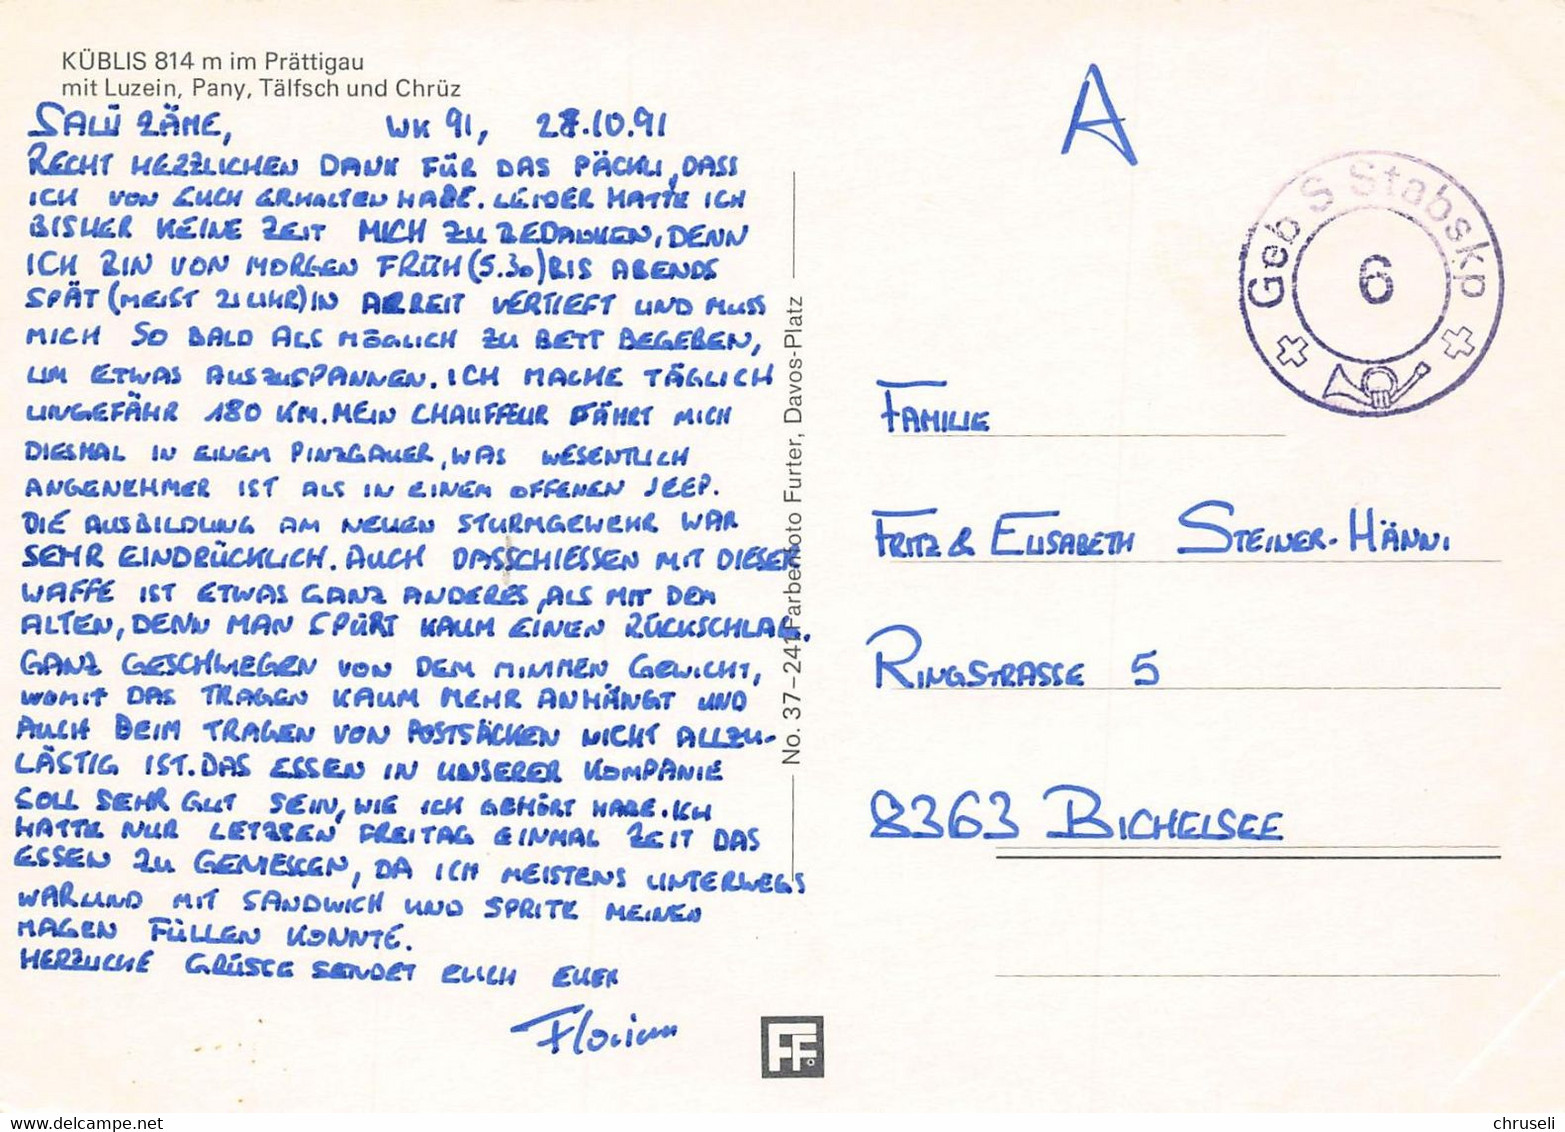 KÜBLIS 814 m im Prättigau
mit Luzein, Pany, Tälfsch und Chrüz
SALÜ ZÄME, WK 91, 28.10.91
RECHT HERZLICHEN DANK FÜR DAS PÄCKLI, DASS
ICH VON EUCH ERHALTEN HABE. LEIDER HATTE ICH
BISHER KEINE ZEIT MICH ZU BEDANKEN, DENN
ICH BIN VON MORGEN FRÜH (5.30) BIS ABENDS
SPÄT (MEIST 21 UHR) IN ARBEIT VERTIEFT UND MUSS
MICH SO BALD ALS MÖGLICH ZU BETT BEGEBEN,
UM ETWAS AUSZUSPANNEN. ICH MACHE TÄGLICH
UNGEFÄHR 180 KM. MEIN CHAUFFEUR FÄHRT MICH
DIESMAL IN EINEM PINZGAUER, WAS WESENTLICH
ANGENEHMER IST ALS IN EINEM OFFENEN JEEP.
DIE AUSBILDUNG AM NEUEN STURMGEWEHR WAR
SEHR EINDRÜCKLICH. AUCH DAS SCHIESSEN MIT DIESER
WAFFE IST ETWAS GANZ ANDERES, ALS MIT DEM
ALTEN, DENN MAN SPÜRT KAUM EINEN RÜCKSCHLAG.
GANZ GESCHWIEGEN VON DEM MINIMEN GEWICHT,
WOMIT DAS TRAGEN KAUM MEHR ANHÄNGT UND
AUCH BEIM TRAGEN VON POSTSÄCKEN NICHT ALLZU-
LÄSTIG IST. DAS ESSEN IN UNSERER KOMPANIE
SOLL SEHR GUT SEIN, WIE ICH GEHÖRT HABE. ICH
HATTE NUR LETZTEN FREITAG EINMAL ZEIT DAS
ESSEN ZU GENIESSEN, DA ICH MEISTENS UNTERWEGS
WAR UND MIT SANDWICH UND SPRITE MEINEN
MAGEN FÜLLEN KONNTE.
HERZLICHE GRÜSSE SENDET EUCH EUER
Florian
No. 37-241 Farbenfoto Furter, Davos-Platz
FF
A
Geb S Stabskp
6
FAMILIE
FRITZ & ELISABETH STEINER-HÄNNI
RINGSTRASSE 5
8363 BICHELSEE
delcampe.net
chruseli